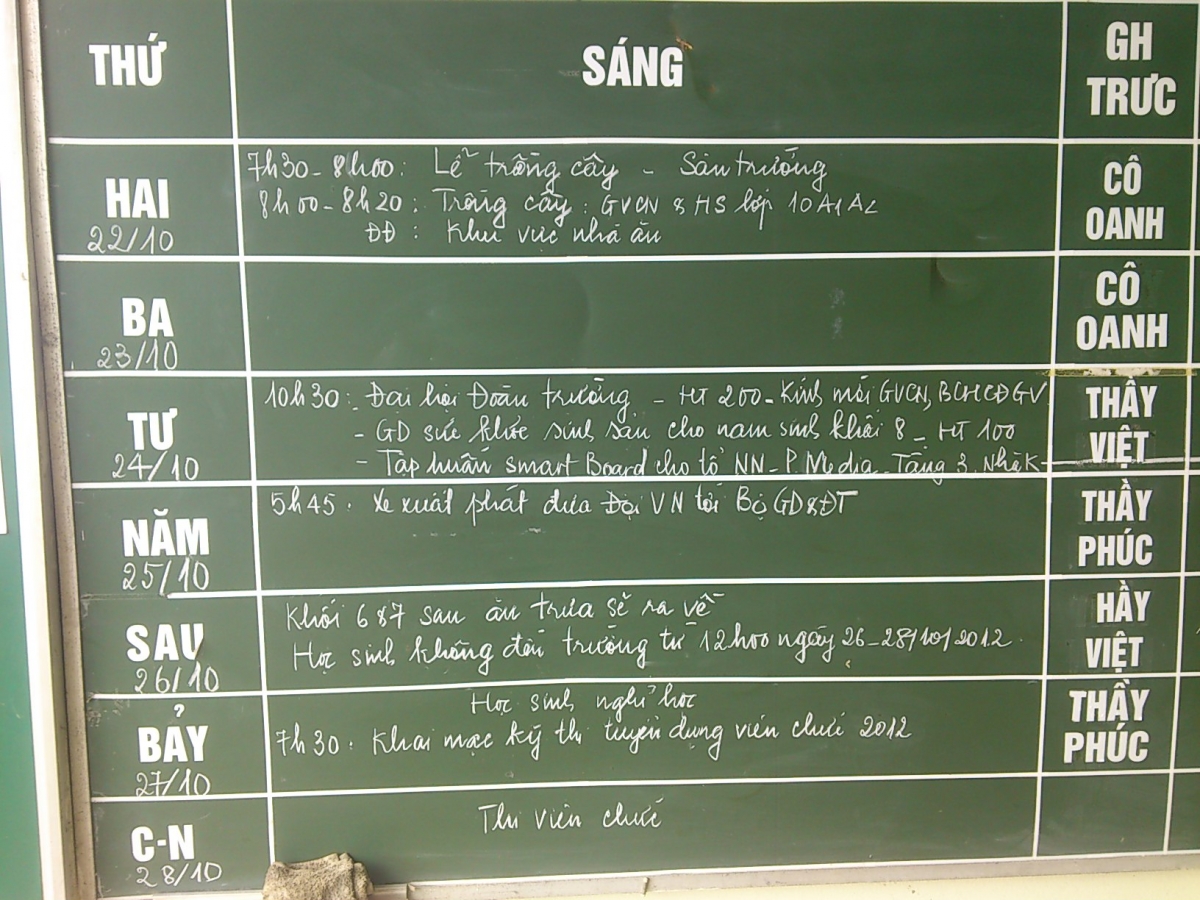 THỨ
SÁNG
GH
TRƯC
HAI
22/10
7h30 - 8h00 : Lễ trồng cây - Sân trường
8h00 - 8h20 : Trồng cây : GVCN & HS lớp 10A1A2
ĐĐ : Khu vực nhà ăn
CÔ
OANH
BA
23/10
CÔ
OANH
TƯ
24/10
10h30 : Đại hội Đoàn trường - HT 200 - Kính mời GVCN, BCHCĐGV
- GD sức khỏe sinh sản cho nam sinh khối 8 - HT 100
- Tập huấn smart Board cho tổ NN - P. Media - Tầng 3. Nhà K
THẦY
VIỆT
NĂM
25/10
5h45 : Xe xuất phát đưa Đội VN tới Bộ GD&ĐT
THẦY
PHÚC
SAU
26/10
Khối 6&7 sau ăn trưa sẽ ra về
Học sinh không đến trường từ 12h00 ngày 26-28/10/2012
HẦY
VIỆT
BẢY
27/10
Học sinh nghỉ học
7h30 : Khai mạc kỳ thi tuyển dụng viên chức 2012
THẦY
PHÚC
C-N
28/10
Thi viên chức